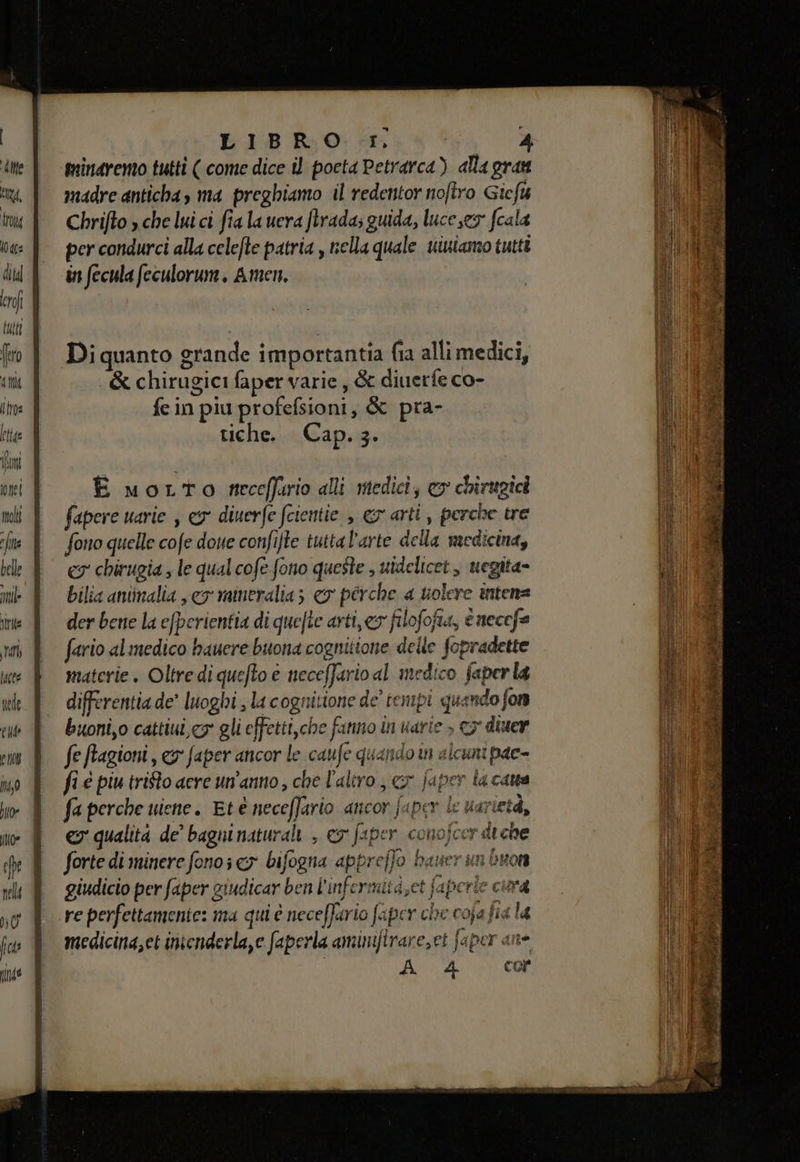 LIBRO I. 4
minaremo tutti ( come dice il poeta Petrarca ) alla gran
madre anticha, ma preghiamo il redentor noſtro Gieſu
Chriſto, che lui ci ſia la uera ſtrada, guida, luce, &amp; ſcala
per condurci alla celeſte patria, nella quale uiuiamo tutti
in ſecula ſeculorum. Amen.
Di quanto grande importantia ſia alli medici,
&amp; chirugici ſaper varie, &amp; diuerſe co-
ſe in piu profeſsioni, &amp; pra-
tiche. Cap. 3.
È MOLTO neceſſario alli medici, &amp; chirugici
ſapere uarie, &amp; diuerſe ſcientie, &amp; arti, perche tre
ſono quelle coſe doue conſiſte tutta l'arte della medicina,
&amp; chirugia, le qual coſe ſono queſte, uidelicet, uegita-
bilia animalia, &amp; mineralia; &amp; perche a uolere inten-
der bene la eſperientia di queſte arti, &amp; filoſofia, è neceſ-
ſario al medico hauere buona cognitione delle ſopradette
materie. Oltre di queſto è neceſſario al medico ſaper la
differentia de' luoghi, la cognitione de' tempi quando ſon
buoni, o cattiui, &amp; gli effetti, che fanno in uarie, &amp; diuer
ſe ſtagioni, &amp; ſaper ancor le cauſe quando in alcuni pae-
ſi è piu triſto aere un'anno, che l'altro, &amp; ſaper la cau-
ſa perche uiene. Et è neceſſario ancor ſaper le uarietà,
&amp; qualità de' bagni naturali, &amp; ſaper conoſcer di che
ſorte di minere ſono; &amp; biſogna appreſſo hauer un buon
giudicio per ſaper giudicar ben l'infermità, et ſaperle cura
re perfettamente: ma qui è neceſſario ſaper che coſa ſia la
medicina, et intenderla, e ſaperla aminiſtrare, et ſaper an-
A 4 cor